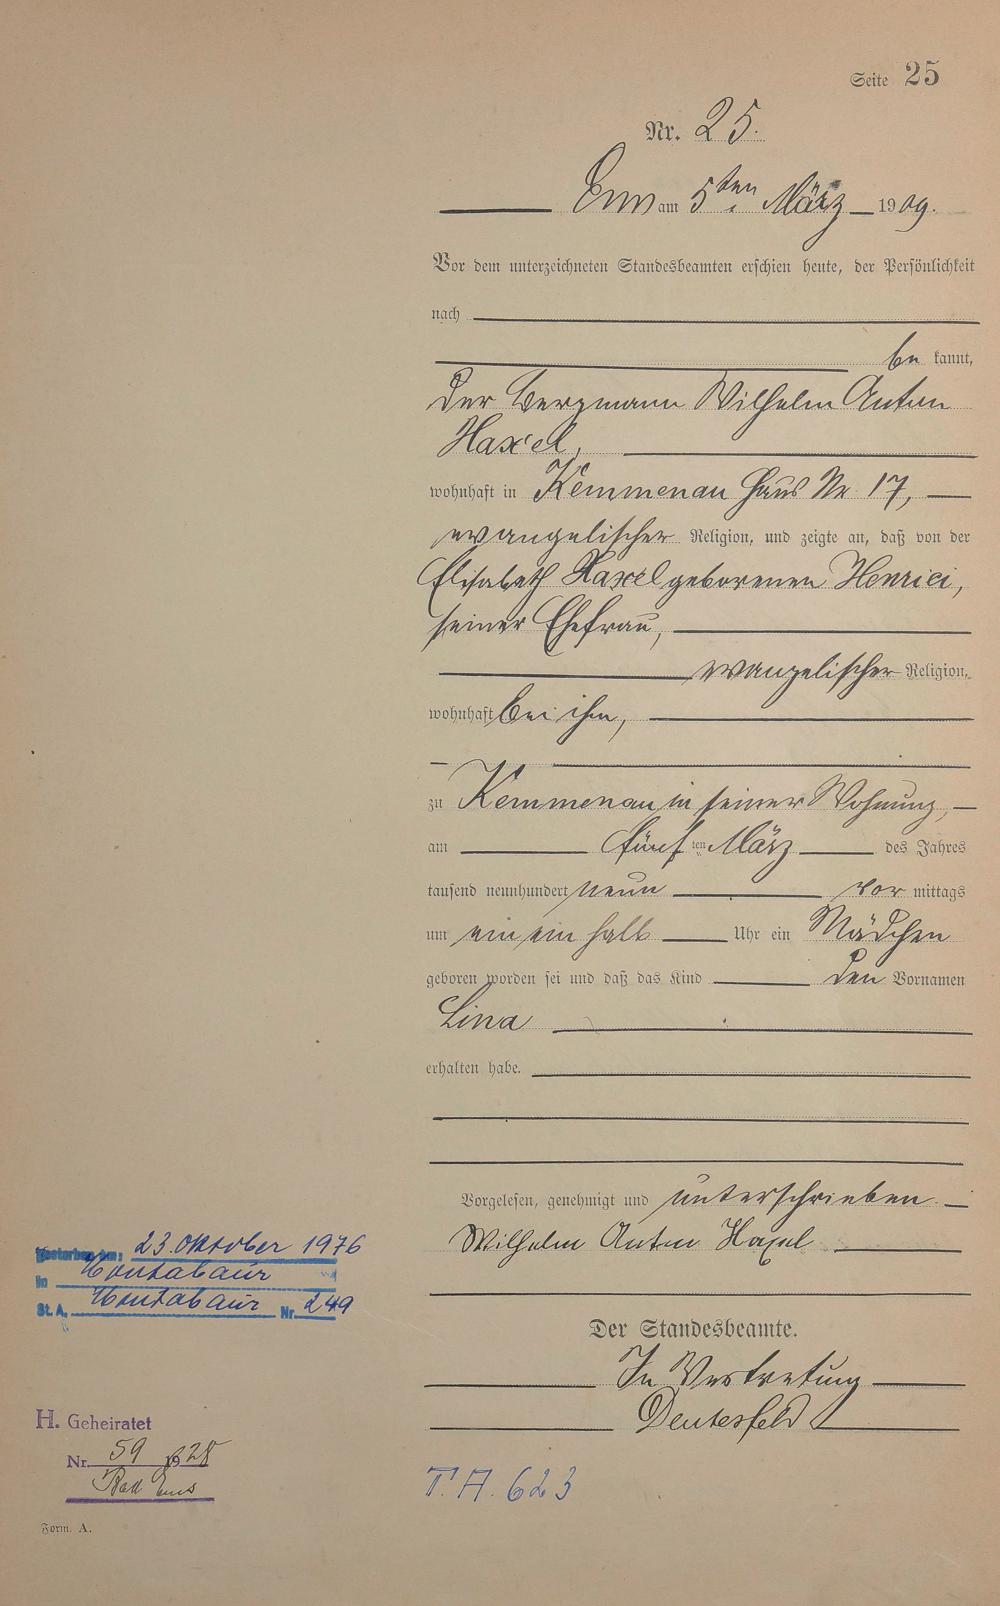 Seite 25
Nr. 25.
Ems am 5ten März 1909.
Vor dem unterzeichneten Standesbeamten erschien heute, der Persönlichkeit
nach
be kannt,
der Bergmann Wilhelm Anton
Haxel,
wohnhaft in Kemmenau Haus Nr. 17,
evangelischer Religion, und zeigte an, daß von der
Elisabeth Haxel geborenen Henrici,
seiner Ehefrau,
evangelischer Religion,
wohnhaft bei ihm,
zu Kemmenau in seiner Wohnung,
am fünften März des Jahres
tausend neunhundert neun vor mittags
um ein ein halb Uhr ein Mädchen
geboren worden sei und daß das Kind den Vornamen
Lina
erhalten habe.
Vorgelesen, genehmigt und unterschrieben.
Wilhelm Anton Haxel
Der Standesbeamte.
In Vertretung
Deutesfeld
T. A. 623
Gestorben am: 23. Oktober 1976
in Montabaur
St. A. Montabaur Nr. 249
H. Geheiratet
Nr. 59 28
Bad Ems
Form. A.